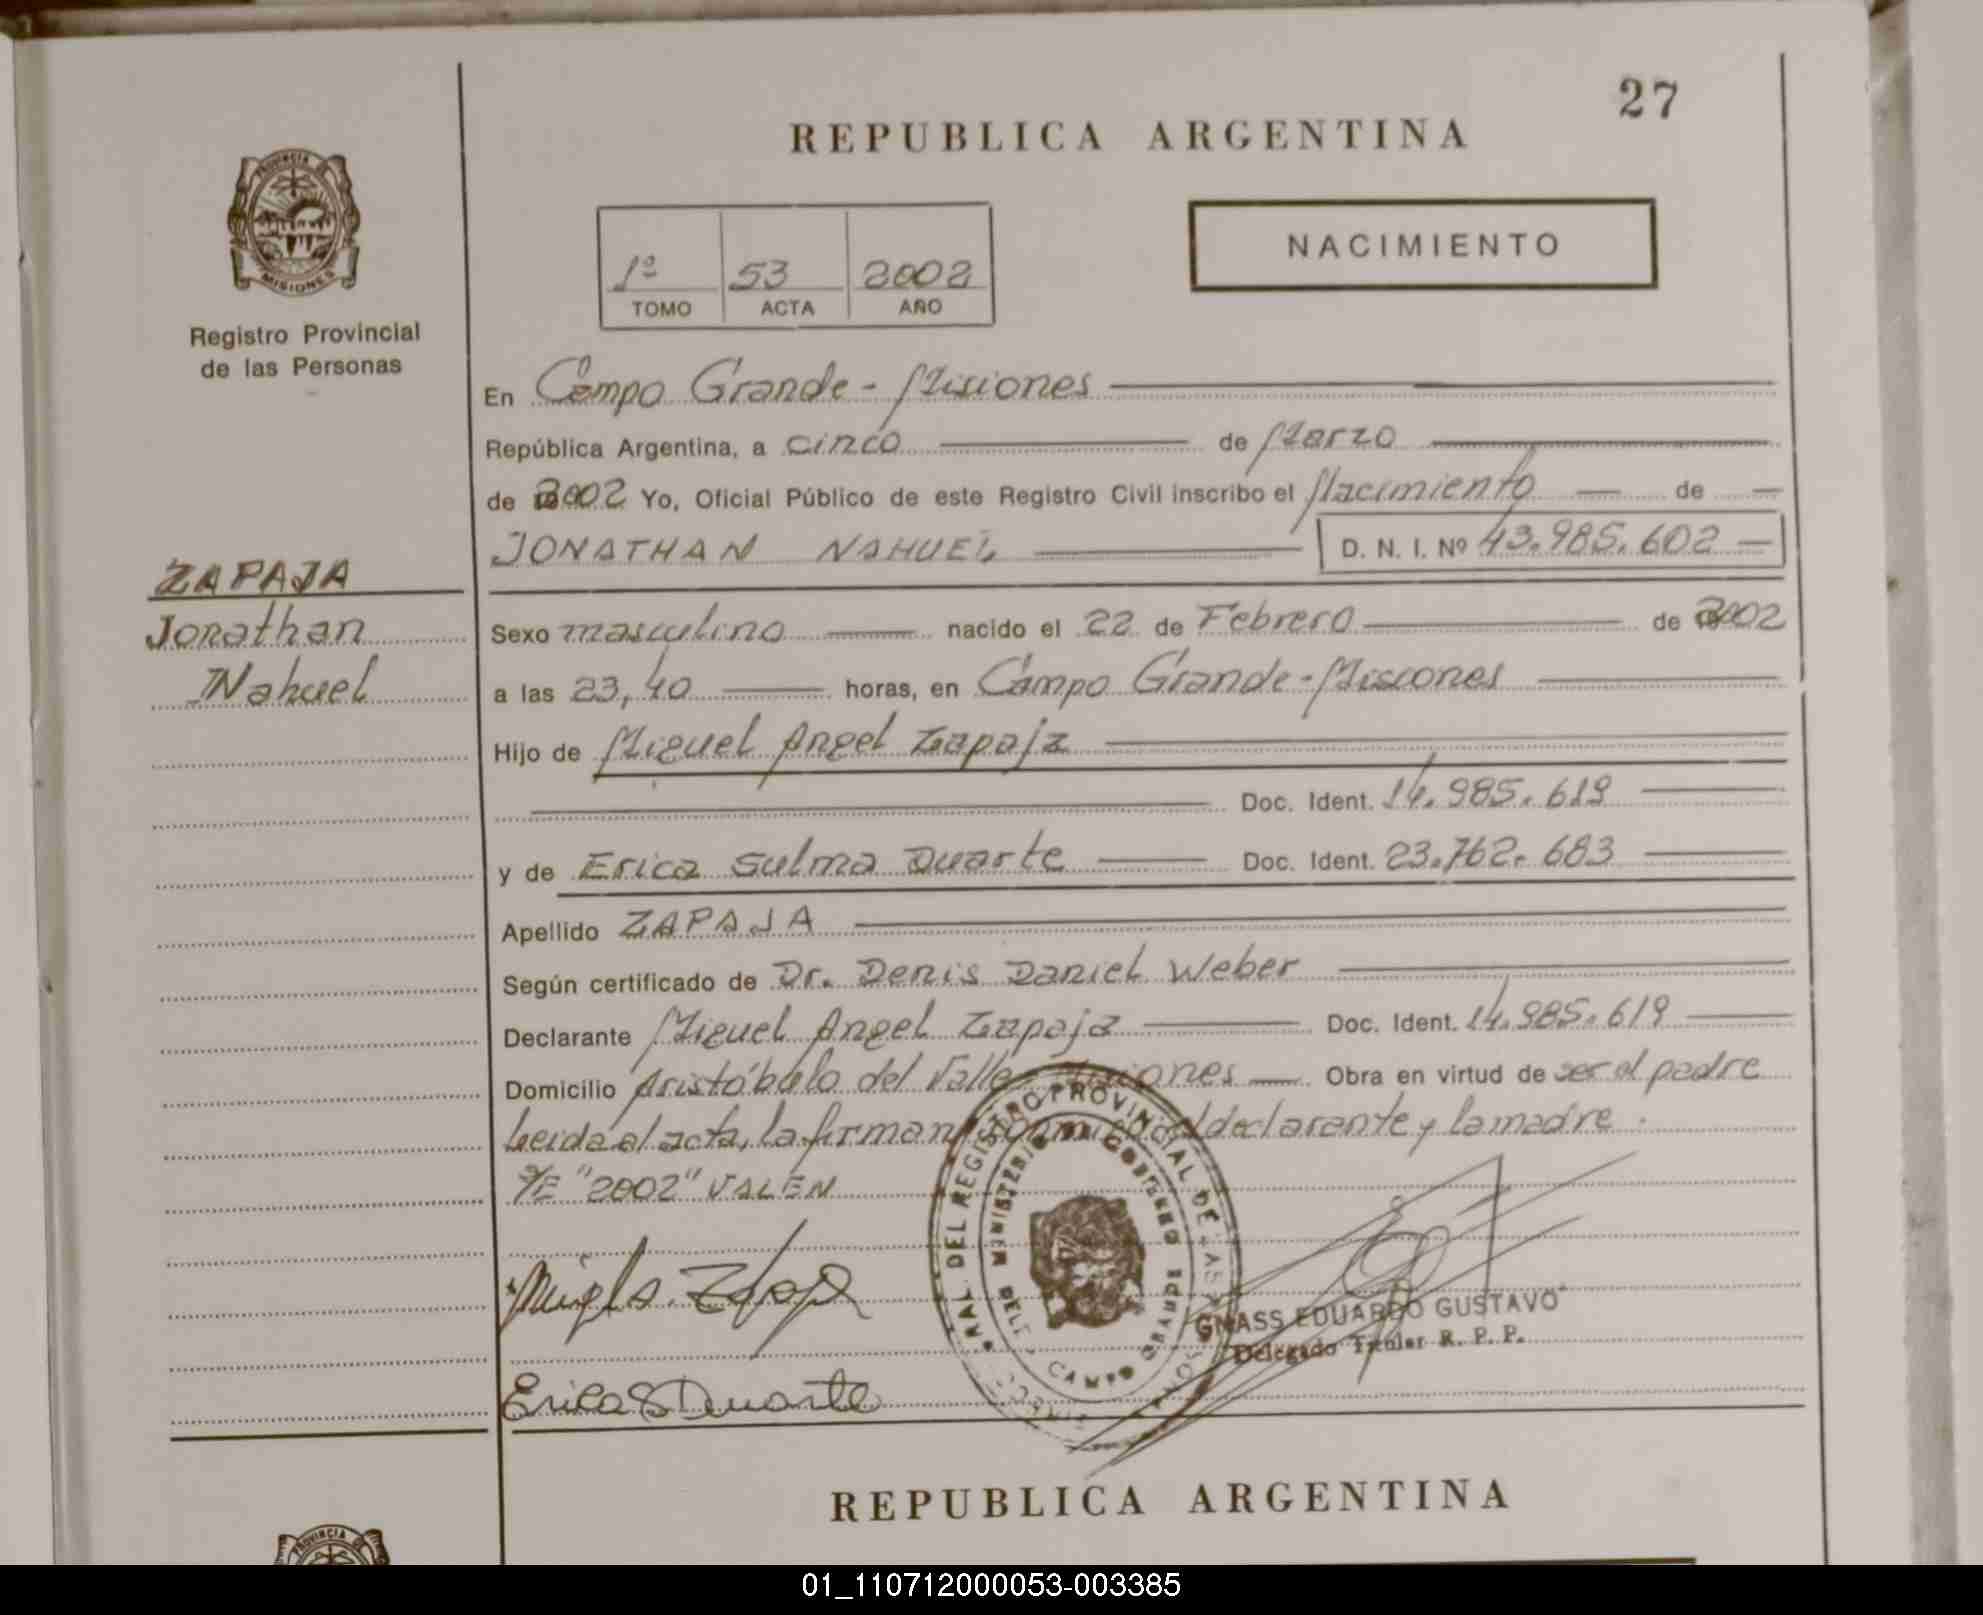 27
REPUBLICA ARGENTINA
PROVINCIA DE
MISIONES
Registro Provincial
de las Personas
1º 53 2002
TOMO ACTA AÑO
NACIMIENTO
En Campo Grande - Misiones
República Argentina, a cinco de Marzo
de 2002 Yo, Oficial Público de este Registro Civil inscribo el Nacimiento de
JONATHAN NAHUEL D. N. I. Nº 43.985.602
ZAPAJA
Jonathan
Nahuel
Sexo masculino nacido el 22 de Febrero de 2002
a las 23,40 horas, en Campo Grande - Misiones
Hijo de Miguel Angel Zapaja
Doc. Ident. 14.985.619
y de Erica Sulma Duarte Doc. Ident. 23.762.683
Apellido ZAPAJA
Según certificado de Dr. Denis Daniel Weber
Declarante Miguel Angel Zapaja Doc. Ident. 14.985.619
Domicilio Aristóbulo del Valle Misiones Obra en virtud de ser el padre
Leida el acta, la firman conmigo el declarante y la madre.
S/E "2002" VALEN
REGISTRO PROVINCIAL DE LAS
MINISTERIO DE GOBIERNO
DELE CAMPO GRANDE
GNASS EDUARDO GUSTAVO
Delegado Titular R. P. P.
Erica S Duarte
REPUBLICA ARGENTINA
PROVINCIA DE
01_110712000053-003385